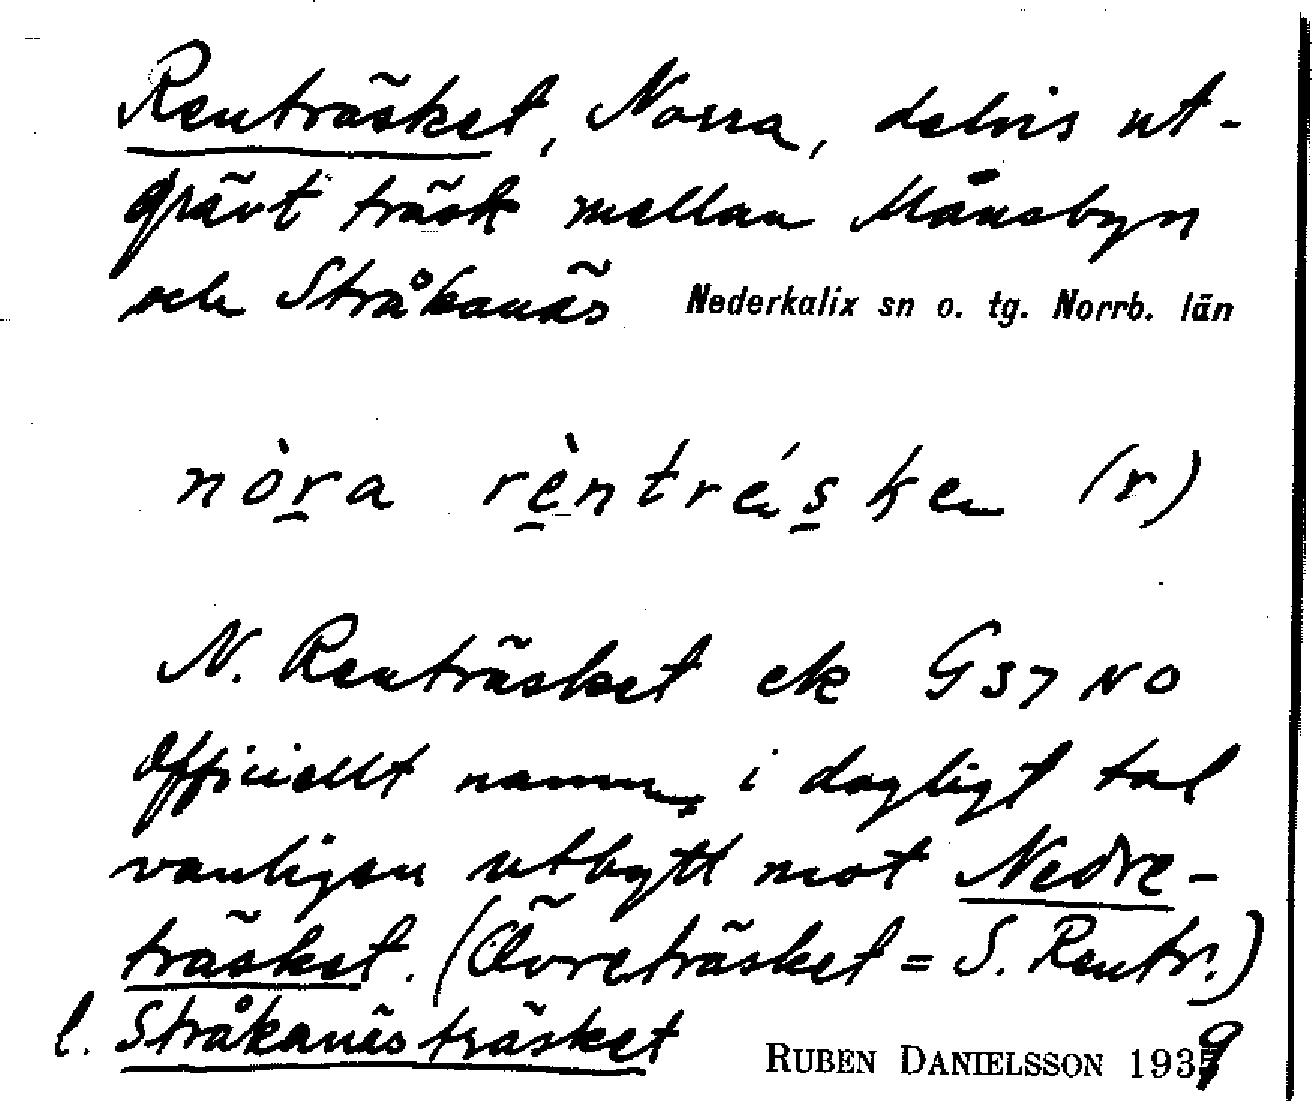 Renträsket, Norra, delvis ut-
grävt träsk mellan Månsbyn
och Stråkanäs Nederkalix sn o. tg. Norrb. län
nòra rèntréske (r)
N. Renträsket ek G37 NO
Officiellt namn, i dagligt tal
vanligen utbytt mot Nedre-
träsket. (Övreträsket = S. Rentr.)
l. Stråkanästräsket RUBEN DANIELSSON 1939